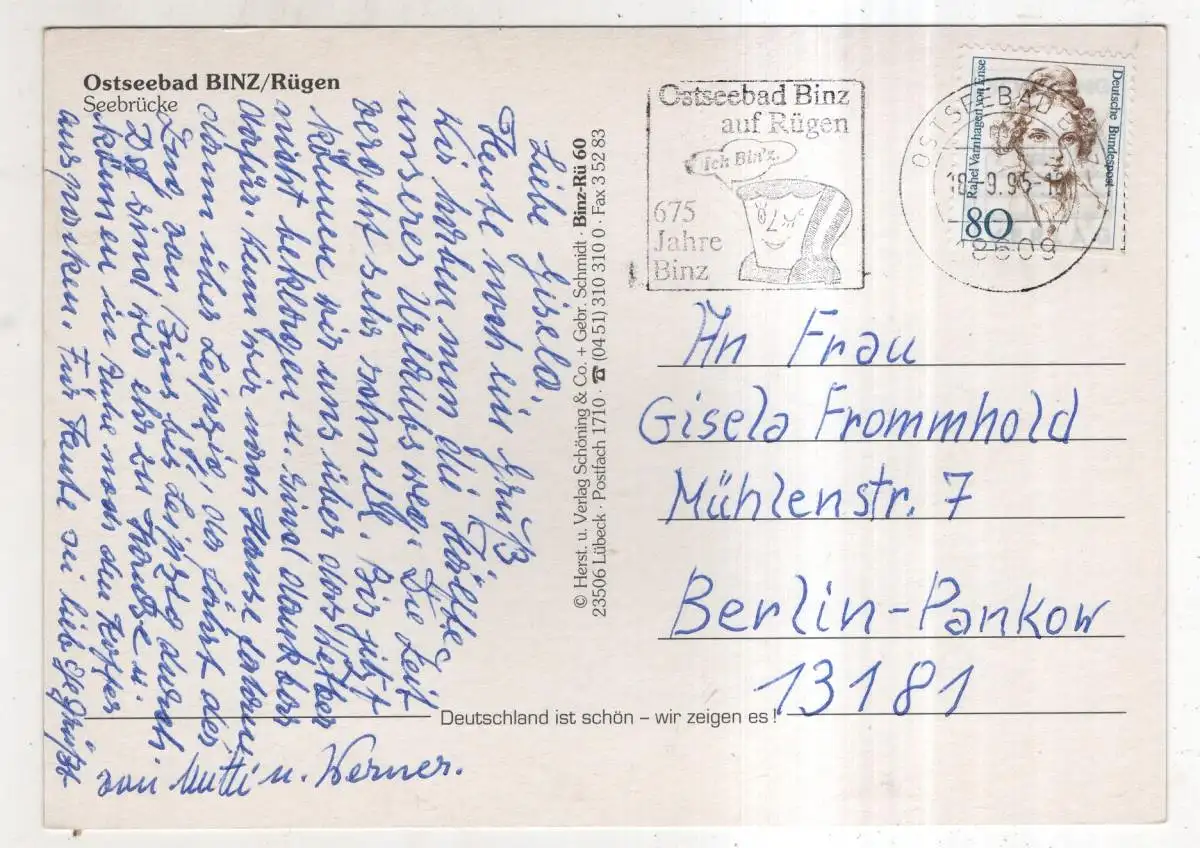 Ostseebad BINZ/Rügen
Seebrücke
Liebe Gisela,
Heute noch ein Gruß
Wir haben nun die Hälfte
unseres Urlaubs weg. Die Zeit
vergeht sehr schnell. Bis jetzt
können wir uns über das Wetter
nicht beklagen u. sind dankbar
dafür. Wenn wir nach Hause fahren
dann über Leipzig, da fährt der
Zug von Binz bis Leipzig durch
sind wir eher zu Hause u.
können in Ruhe noch den Koffer
auspacken. Für heute sei lieb gegrüßt
von Mutti u. Werner.
© Herst. u. Verlag Schöning & Co. + Gebr. Schmidt · Binz-Rü 60
23506 Lübeck · Postfach 1710 · ☎ (04 51) 310 310 0 · Fax 3 52 83
Ostseebad Binz
auf Rügen
Ich Bin'z.
675
Jahre
Binz
OSTSEEBAD BINZ
9.95
18609
Rahel Varnhagen von Ense
Deutsche Bundespost
80
An Frau
Gisela Frommhold
Mühlenstr. 7
Berlin-Pankow
13181
Deutschland ist schön – wir zeigen es!